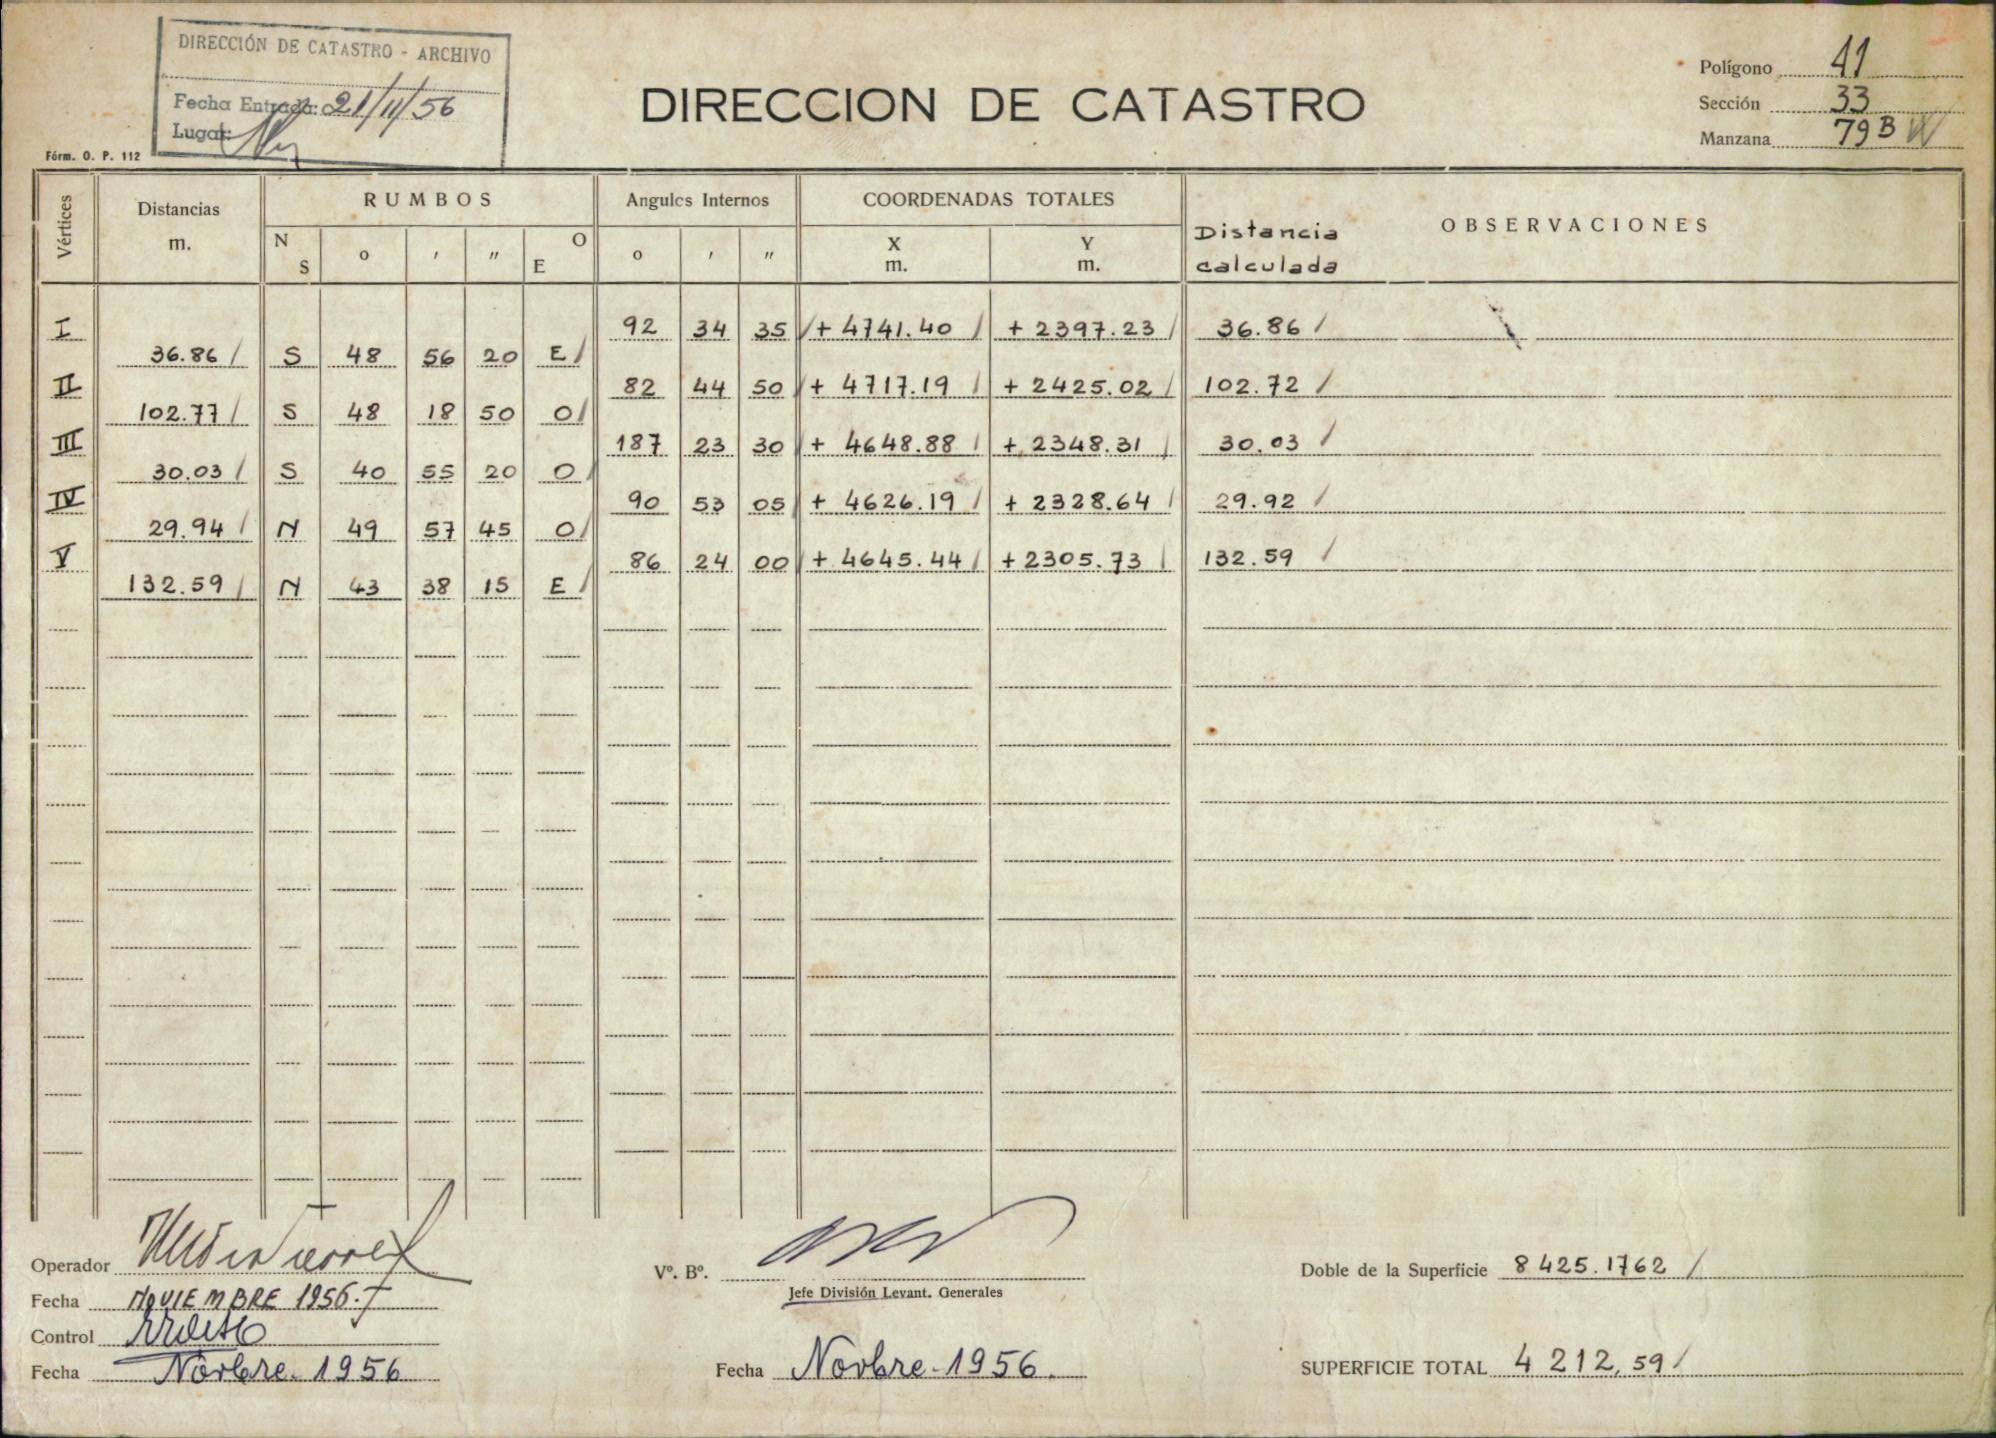 DIRECCIÓN DE CATASTRO - ARCHIVO
Fecha Entrada: 21/11/56
Lugar:
Fórm. O. P. 112
DIRECCION DE CATASTRO
Polígono 41
Sección 33
Manzana 79 B W
Vértices Distancias m. RUMBOS Angulos Internos COORDENADAS TOTALES Distancia calculada OBSERVACIONES
N S o ' " O E o ' " X m. Y m.
I 92 34 35 / + 4741.40 / + 2397.23 / 36.86 /
36.86 / S 48 56 20 E /
II 82 44 50 / + 4717.19 / + 2425.02 / 102.72 /
102.77 / S 48 18 50 O /
III 187 23 30 / + 4648.88 / + 2348.31 / 30.03 /
30.03 / S 40 55 20 O /
IV 90 53 05 / + 4626.19 / + 2328.64 / 29.92 /
29.94 / N 49 57 45 O /
V 86 24 00 / + 4645.44 / + 2305.73 / 132.59 /
132.59 / N 43 38 15 E /
Operador
Fecha NOVIEMBRE 1956.
Control
Fecha Novbre. 1956
Vº. Bº.
Jefe División Levant. Generales
Fecha Novbre - 1956.
Doble de la Superficie 8 425.1762 /
SUPERFICIE TOTAL 4 212,59 /